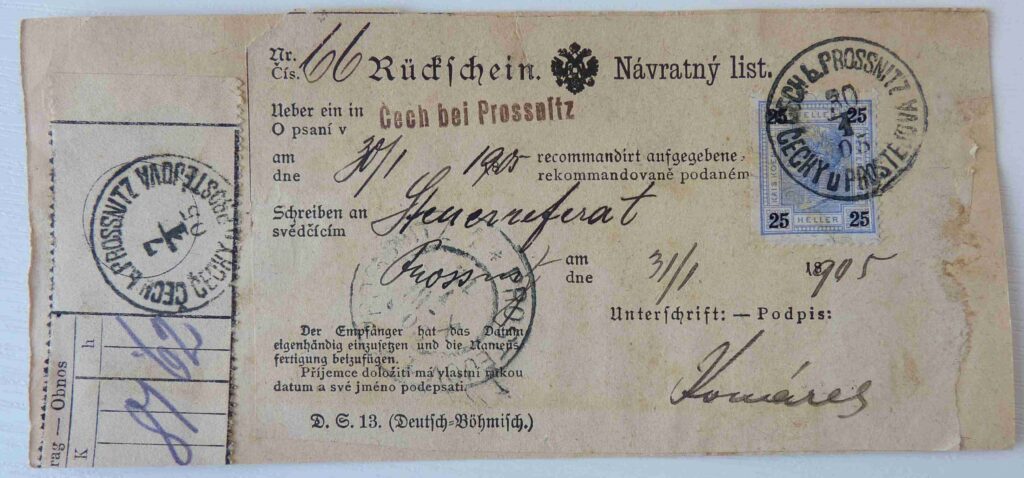 Nr. 66 Rückschein. Návratný list.
Čís.
Ueber ein in Čech bei Prossnitz
O psaní v
am 30/1 1905 recommandirt aufgegebene
dne rekommandovaně podaném
Schreiben an Steuerreferat
svědčícím
Prossnitz am 31/1 1905
dne
Unterschrift: — Podpis:
Komárek
Der Empfänger hat das Datum
eigenhändig einzusetzen und die Namens
fertigung beizufügen.
Příjemce doložiti má vlastní rukou
datum a své jméno podepsati.
D. S. 13. (Deutsch-Böhmisch.)
25 25
HELLER
25 HELLER 25
ČECH b. PROSSNITZ
ČECHY u PROSTĚJOVA
ČECH b. PROSSNITZ
ČECHY u PROSTĚJOVA
rag — Obnos
K h
81 62